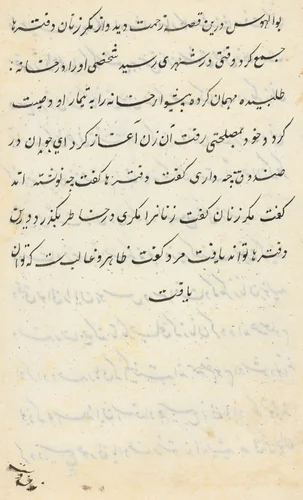 بوالهوس درین قصه زحمت دید و از مکر زنان دفترها
جمع کرد وقتی در شهری رسید شخصی او را در خانه
طلبیده مهمان کرده پیشوا رخانه را به تیمار او وصیت
کرد و خود بمصلحتی رفت آن زن آغاز کرد ای جوان در
صندوقچه داری گفت دفترها گفت چه نوشته اند
گفت مکر زنان گفت زنانرا مکری در خاطر بگذرد درین
دفترها تواند یافت مرد گفت ظاهر و غالب ست که توان
یافت